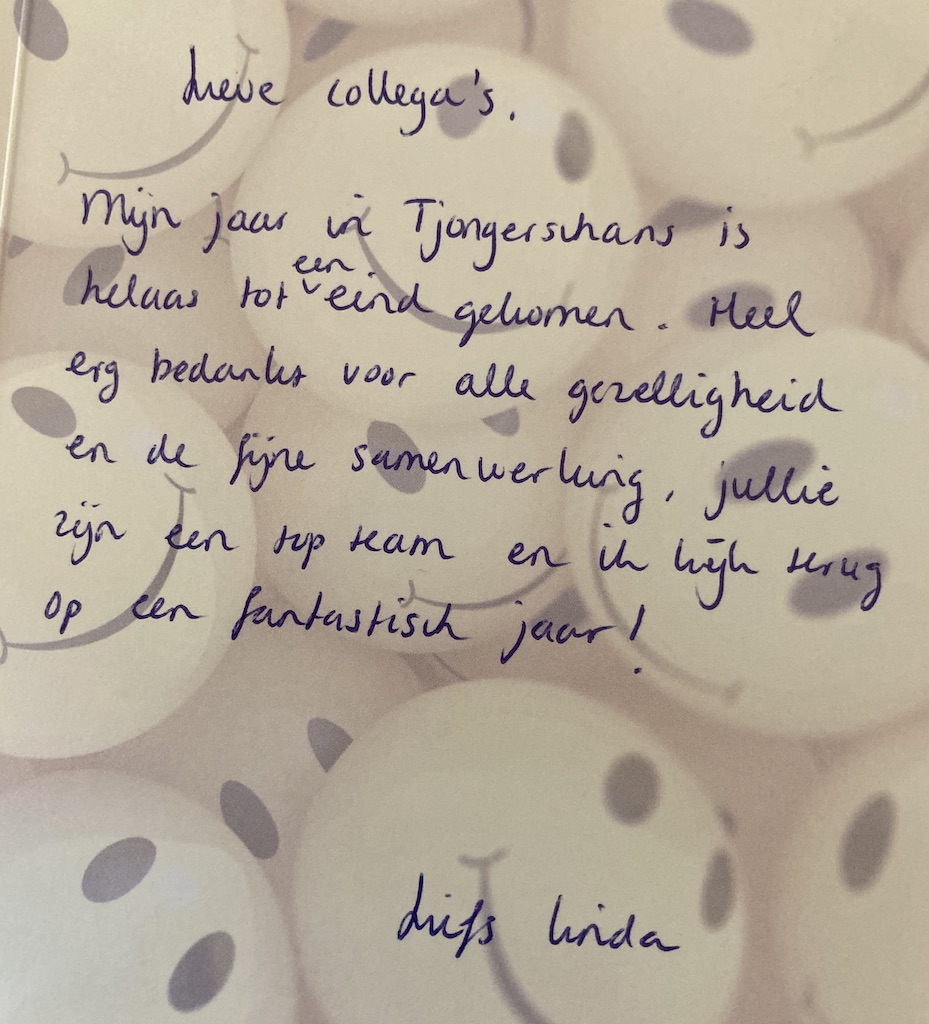 Lieve collega's.
Mijn jaar in Tjongerschans is
helaas tot een eind gekomen. Heel
erg bedankt voor alle gezelligheid
en de fijne samenwerking, jullie
zijn een top team en ik kijk terug
op een fantastisch jaar!
Liefs Linda